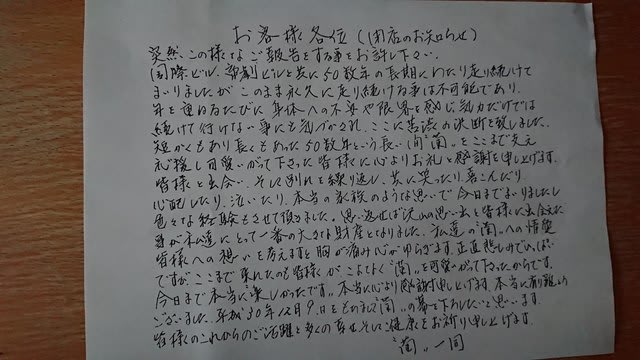 お客様各位(閉店のお知らせ)
突然、この様なご報告をする事をお許し下さい。
国際ビル、帝劇ビルと共に50数年の長期にわたり走り続けて
まいりましたが、このまま永久に走り続ける事は不可能であり、
年を重ねるたびに身体への不安や限界を感じ気力だけでは
続けて行けない事にも気づかされ、ここに苦渋の決断を致しました。
短かくもあり長くもあった50数年という長い間"蘭"をここまで支え
応援し可愛いがって下さった皆様に心よりお礼と感謝を申し上げます。
皆様と出会い、そして別れを繰り返し、共に笑ったり、喜こんだり
心配したり、泣いたり、本当の家族のような思いで今日までまいりましたし
色々な経験もさせて頂きました。思い返せば沢山の思い出と皆様に出会えた
事が私達にとって一番の大きな財産となりました。私達の"蘭"への情愛
皆様への想いを考えますと胸が痛み心がゆらぎます。正直悲しみでいっぱい
ですが、ここまで来れたのも皆様がこよなく"蘭"を可愛がって下さったからです。
今日まで本当に"楽しかったです"。本当に心より感謝申し上げます。本当に有難う
ございました。平成30年12月9日をもちまして"蘭"の幕を下ろしたいと思います。
皆様のこれからのご活躍と多くの幸せそして健康をお祈り申し上げます。
"蘭"一同